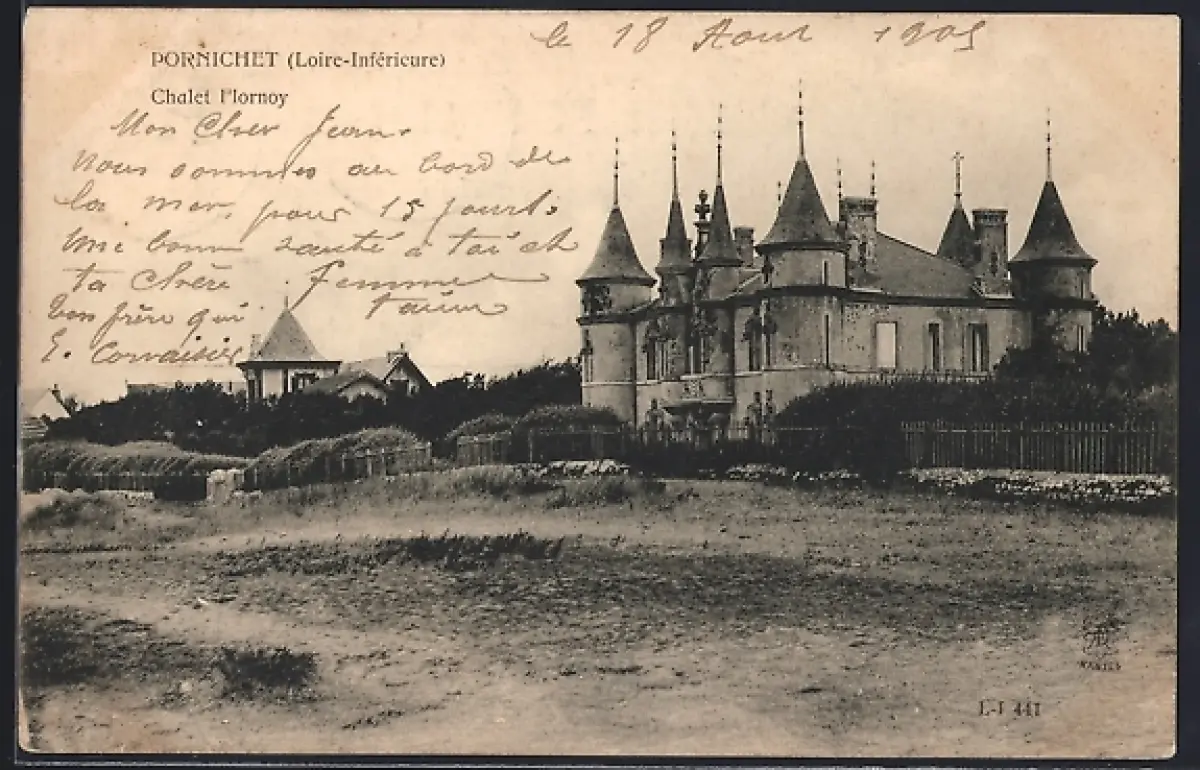 le 18 Aout 1905
PORNICHET (Loire-Inférieure)
Chalet Flornoy
Mon Cher Jean.
Nous sommes au bord de
la mer, pour 15 jours.
bonne santé à toi et
ta Chère Femme
ton frère qui
E.
NANTES
L-J 441